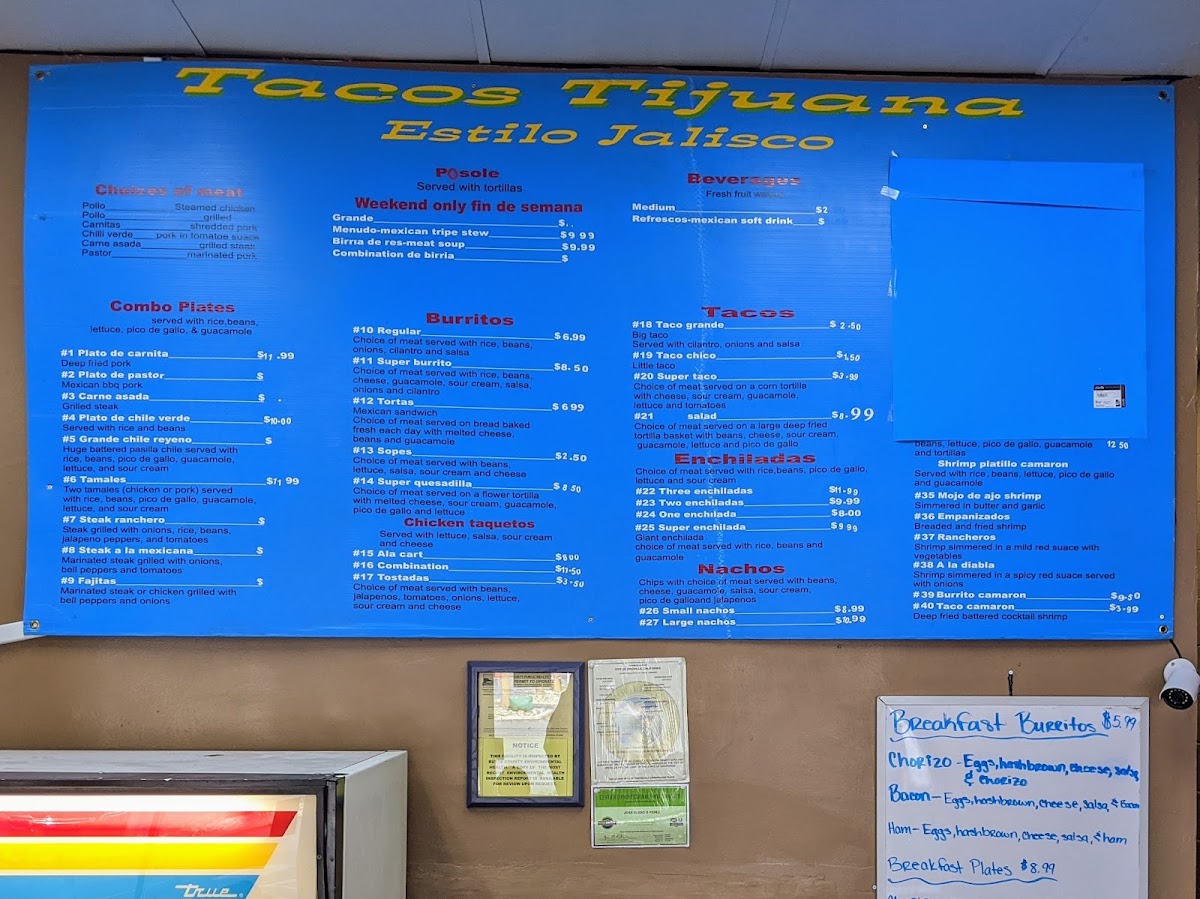 Tacos Tijuana
Estilo Jalisco
Choices of meat
Pollo Steamed chicken
Pollo grilled
Carnitas shredded pork
Chilli verde pork in tomatoe suace
Carne asada grilled steak
Pastor marinated pork
Combo Plates
served with rice,beans,
lettuce, pico de gallo, & guacamole
#1 Plato de carnita $11.99
Deep fried pork
#2 Plato de pastor $
Mexican bbq pork
#3 Carne asada $
Grilled steak
#4 Plato de chile verde $10.00
Served with rice and beans
#5 Grande chile reyeno $
Huge battered pasilla chile served with
rice, beans, pico de gallo, guacamole,
lettuce, and sour cream
#6 Tamales $11 99
Two tamales (chicken or pork) served
with rice, beans, pico de gallo, guacamole,
lettuce, and sour cream
#7 Steak ranchero $
Steak grilled with onions, rice, beans,
jalapeno peppers, and tomatoes
#8 Steak a la mexicana $
Marinated steak grilled with onions,
bell peppers and tomatoes
#9 Fajitas $
Marinated steak or chicken grilled with
bell peppers and onions
Posole
Served with tortillas
Weekend only fin de semana
Grande $
Menudo-mexican tripe stew $9 99
Birria de res-meat soup $9.99
Combination de birria $
Burritos
#10 Regular $6.99
Choice of meat served with rice, beans,
onions, cilantro and salsa
#11 Super burrito $8.50
Choice of meat served with rice, beans,
cheese, guacamole, sour cream, salsa,
onions and cilantro
#12 Tortas $6 99
Mexican sandwich
Choice of meat served on bread baked
fresh each day with melted cheese,
beans and guacamole
#13 Sopes $2.50
Choice of meat served with beans,
lettuce, salsa, sour cream and cheese
#14 Super quesadilla $8 50
Choice of meat served on a flower tortilla
with melted cheese, sour cream, guacamole,
pico de gallo and lettuce
Chicken taquetos
Served with lettuce, salsa, sour cream
and cheese
#15 Ala cart $800
#16 Combination $11.50
#17 Tostadas $3.50
Choice of meat served with beans,
jalapenos, tomatoes, onions, lettuce,
sour cream and cheese
Beverages
Fresh fruit
Medium $2
Refrescos-mexican soft drink $
Tacos
#18 Taco grande $2.50
Big taco
Served with cilantro, onions and salsa
#19 Taco chico $1.50
Little taco
#20 Super taco $3.99
Choice of meat served on a corn tortilla
with cheese, sour cream, guacamole,
lettuce and tomatoes
#21 salad $8.99
Choice of meat served on a large deep fried
tortilla basket with beans, cheese, sour cream,
guacamole, lettuce and pico de gallo
Enchiladas
Choice of meat served with rice,beans, pico de gallo,
lettuce and sour cream
#22 Three enchiladas $11.99
#23 Two enchiladas $9.99
#24 One enchilada $8.00
#25 Super enchilada $9 99
Giant enchilada
choice of meat served with rice, beans and
guacamole
Nachos
Chips with choice of meat served with beans,
cheese, guacamole, salsa, sour cream,
pico de galloand jelapenos
#26 Small nachos $8.99
#27 Large nachos $10.99
beans, lettuce, pico de gallo, guacamole 12 50
and tortillas
Shrimp platillo camaron
Served with rice, beans, lettuce, pico de gallo
and guacamole
#35 Mojo de ajo shrimp
Simmered in butter and garlic
#36 Empanizados
Breaded and fried shrimp
#37 Rancheros
Shrimp simmered in a mild red suace with
vegetables
#38 A la diabla
Shrimp simmered in a spicy red suace served
with onions
#39 Burrito camaron $9.50
#40 Taco camaron $3.99
Deep fried battered cocktail shrimp
NOTICE
THIS FACILITY IS INSPECTED BY
BUTTE COUNTY ENVIRONMENTAL
HEALTH. A COPY OF THE MOST
RECENT ENVIRONMENTAL HEALTH
INSPECTION REPORT IS AVAILABLE
FOR REVIEW UPON REQUEST.
Breakfast Burritos $5.99
Chorizo - Eggs, hashbrown, cheese, salsa
& Chorizo
Bacon - Eggs, hashbrown, cheese, salsa, & Bacon
Ham - Eggs, hashbrown, cheese, salsa, & ham
Breakfast Plates $8.99
true